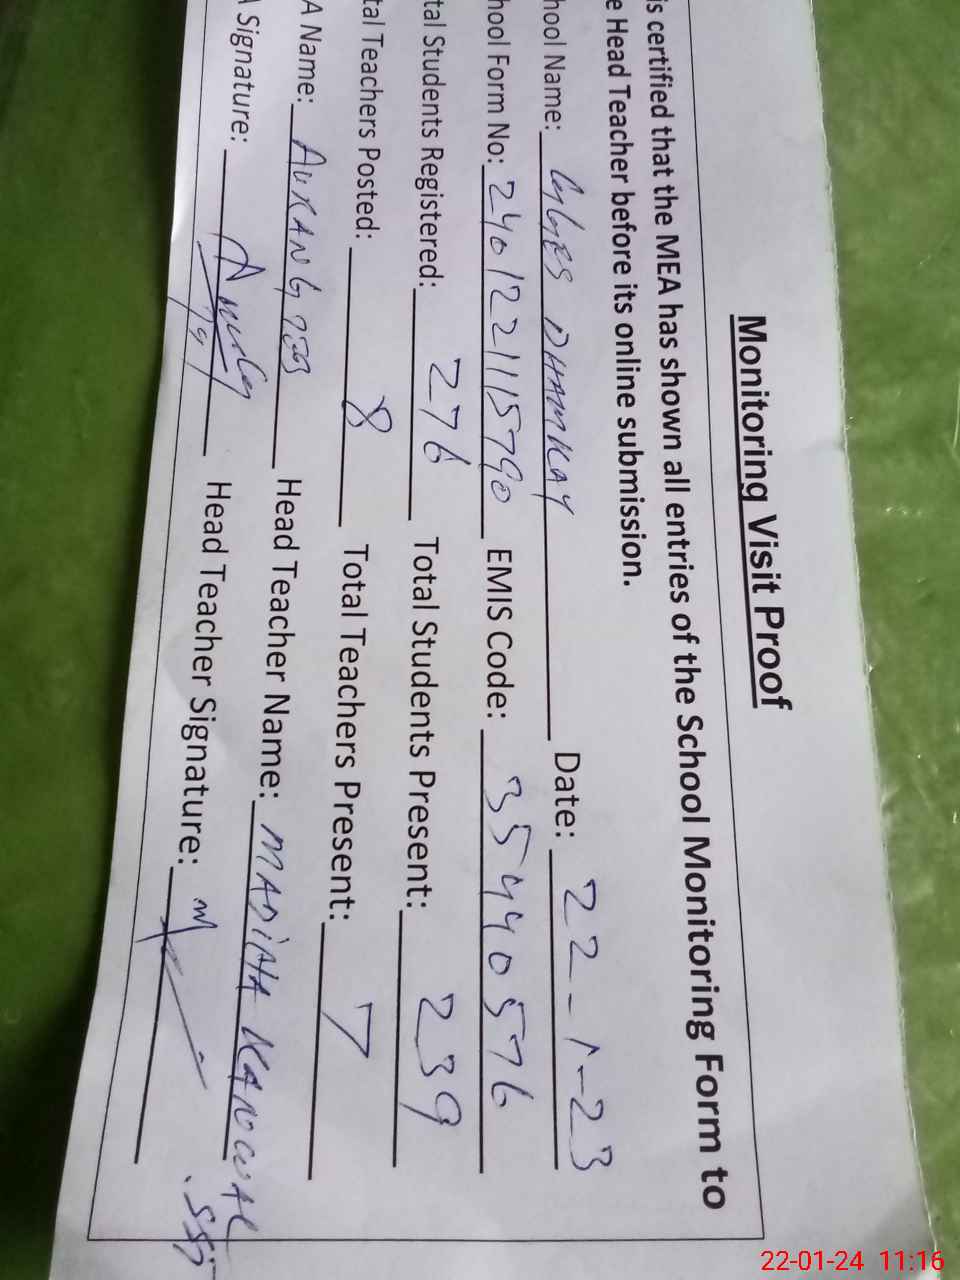 Monitoring Visit Proof
is certified that the MEA has shown all entries of the School Monitoring Form to
e Head Teacher before its online submission.
hool Name: GGES DHAMKAY Date: 22-1-23
hool Form No: 2401221115790 EMIS Code: 35440576
tal Students Registered: 276 Total Students Present: 239
tal Teachers Posted: 8 Total Teachers Present: 7
A Name: AURANGZEB Head Teacher Name: MADIHA KANOWAL
A Signature: Head Teacher Signature:
22-01-24 11:16